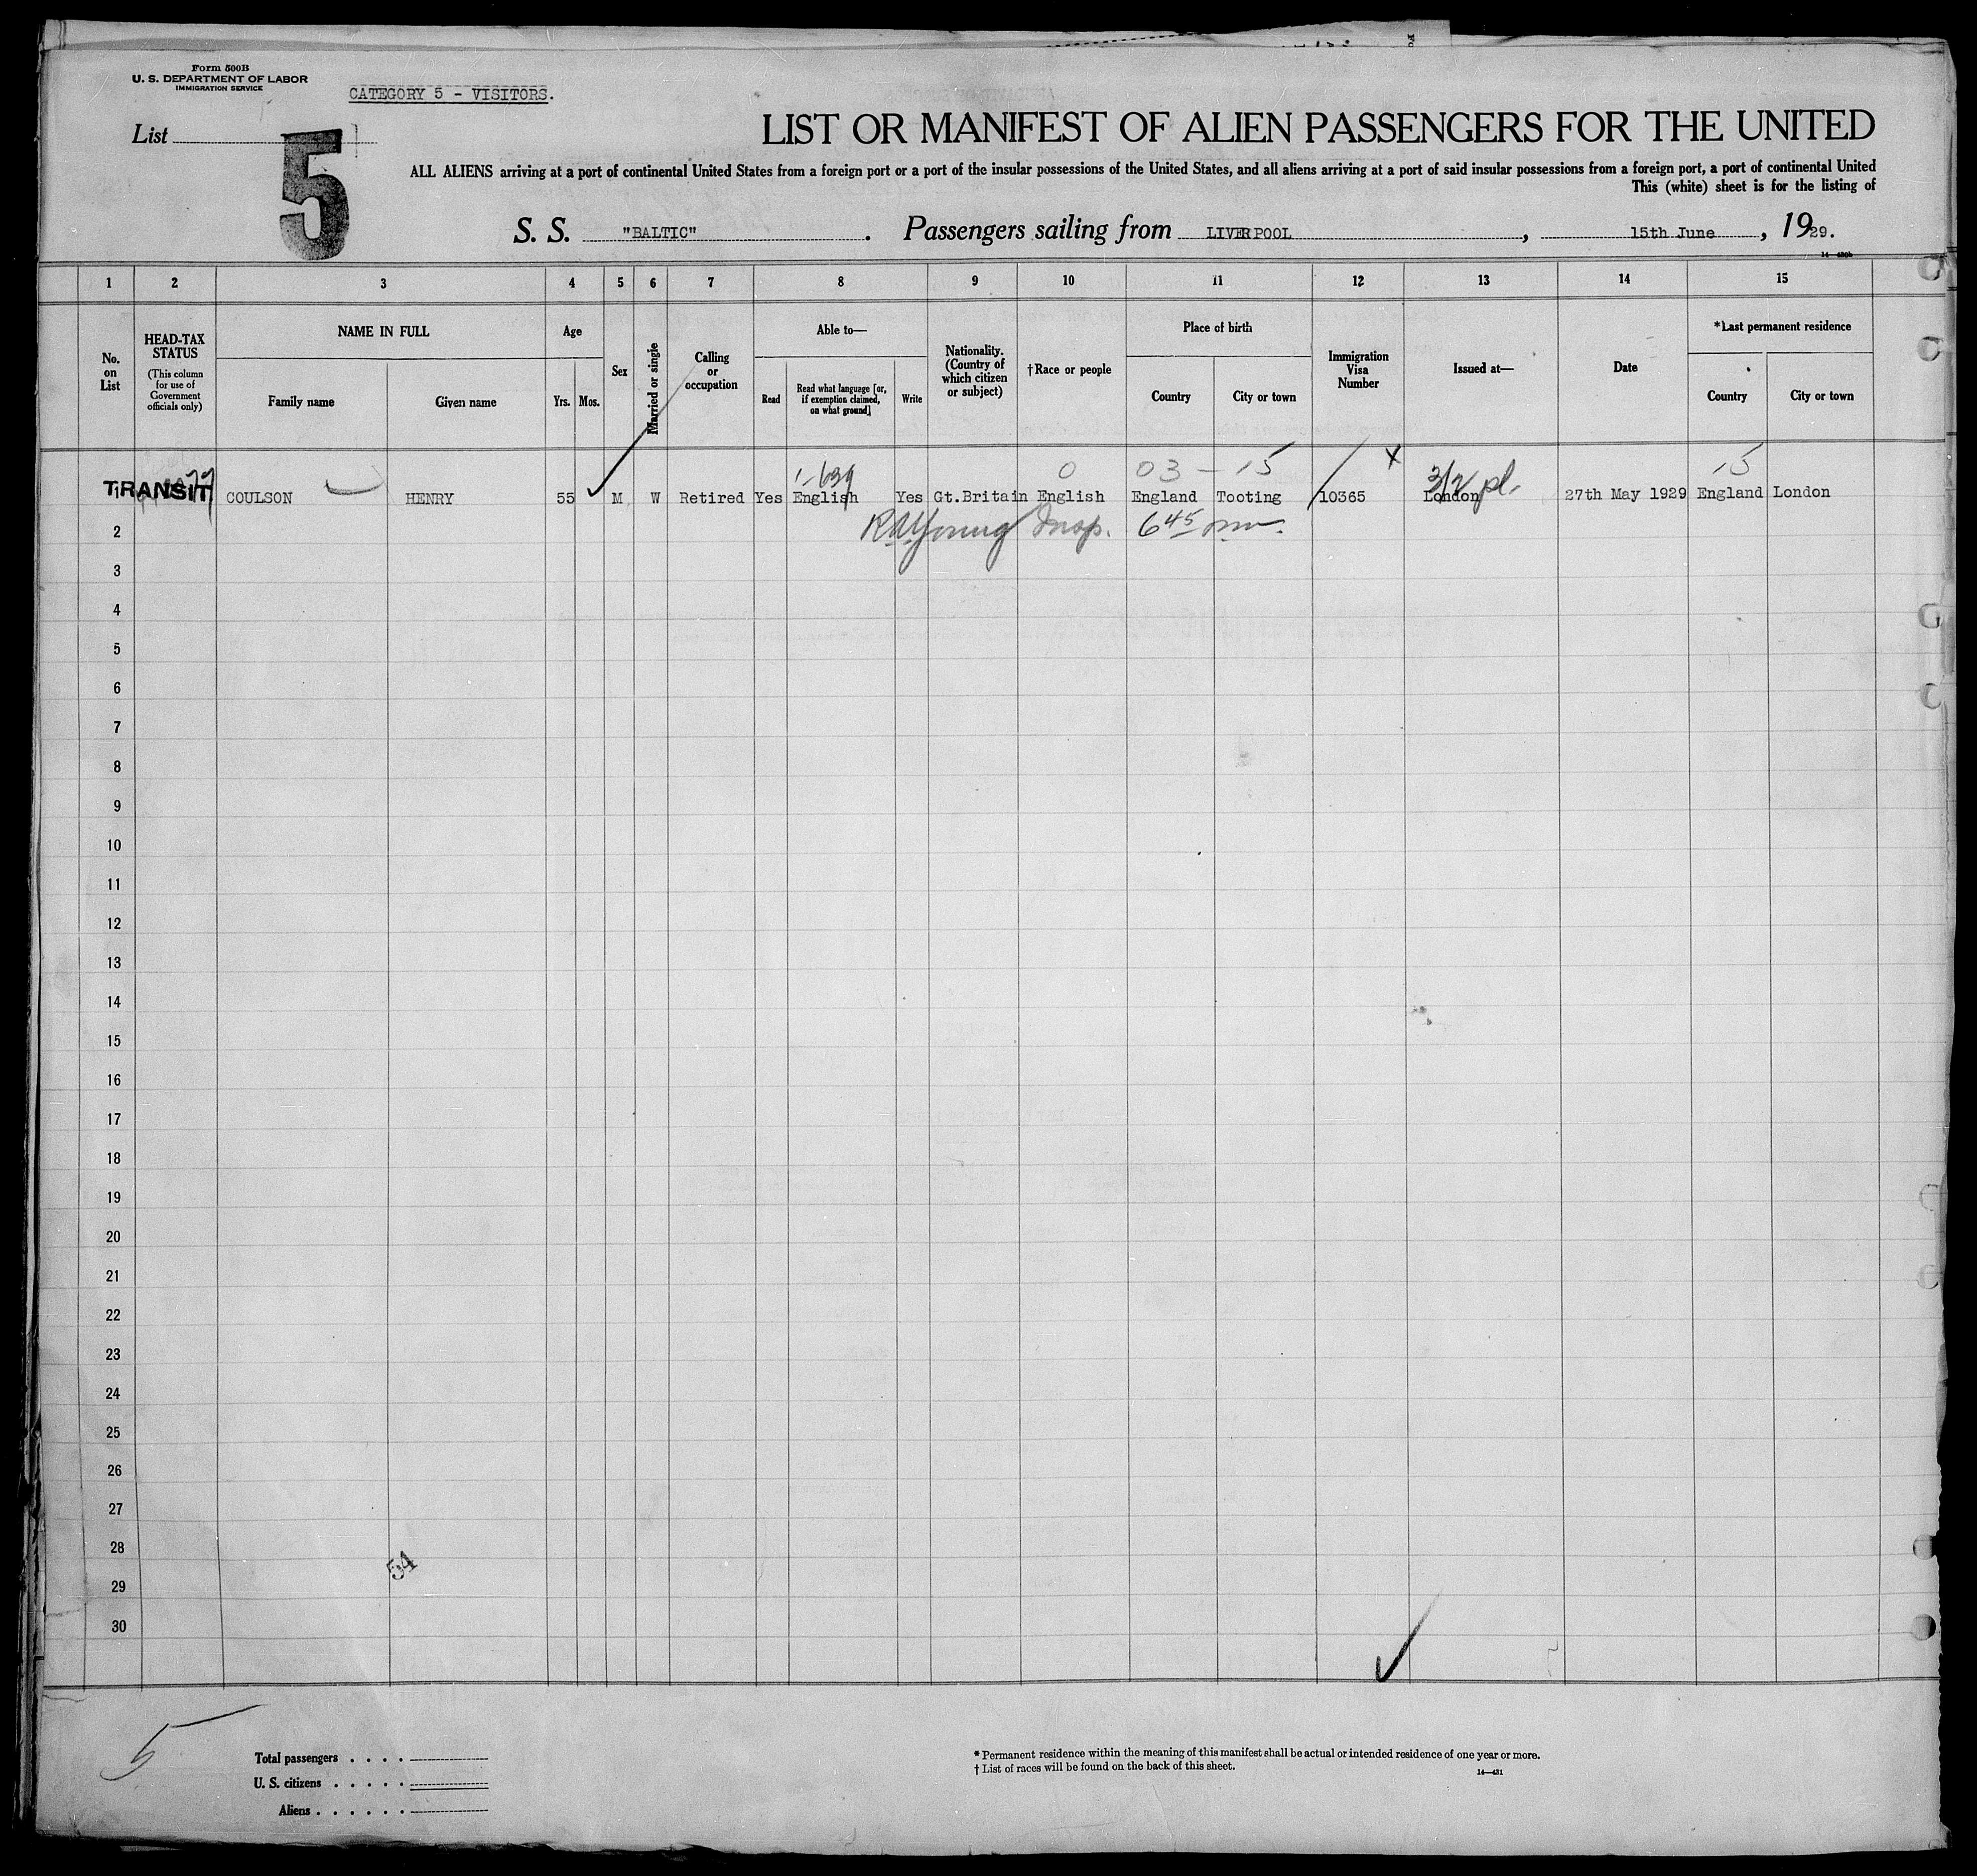 Form 500B
U. S. DEPARTMENT OF LABOR
IMMIGRATION SERVICE
CATEGORY 5 - VISITORS.
List
5
LIST OR MANIFEST OF ALIEN PASSENGERS FOR THE UNITED
ALL ALIENS arriving at a port of continental United States from a foreign port or a port of the insular possessions of the United States, and all aliens arriving at a port of said insular possessions from a foreign port, a port of continental United
This (white) sheet is for the listing of
S. S. "BALTIC". Passengers sailing from LIVERPOOL, 15th June, 1929.
1 2 3 4 5 6 7 8 9 10 11 12 13 14 15
No. on List
HEAD-TAX STATUS
(This column for use of Government officials only)
NAME IN FULL
Family name
Given name
Age
Yrs. Mos.
Sex
Married or single
Calling or occupation
Able to—
Read
Read what language [or, if exemption claimed, on what ground]
Write
Nationality. (Country of which citizen or subject)
†Race or people
Place of birth
Country
City or town
Immigration Visa Number
Issued at—
Date
*Last permanent residence
Country
City or town
0 03 - 15 15
TRANSIT COULSON HENRY 55 M W Retired Yes English Yes Gt.Britain English England Tooting 10365 London 27th May 1929 England London
Insp. 6 45 pm.
2
3
4
5
6
7
8
9
10
11
12
13
14
15
16
17
18
19
20
21
22
23
24
25
26
27
28
54
29
30
5
Total passengers . . . .
U. S. citizens . . . . .
Aliens . . . . . .
* Permanent residence within the meaning of this manifest shall be actual or intended residence of one year or more.
† List of races will be found on the back of this sheet.
14—431